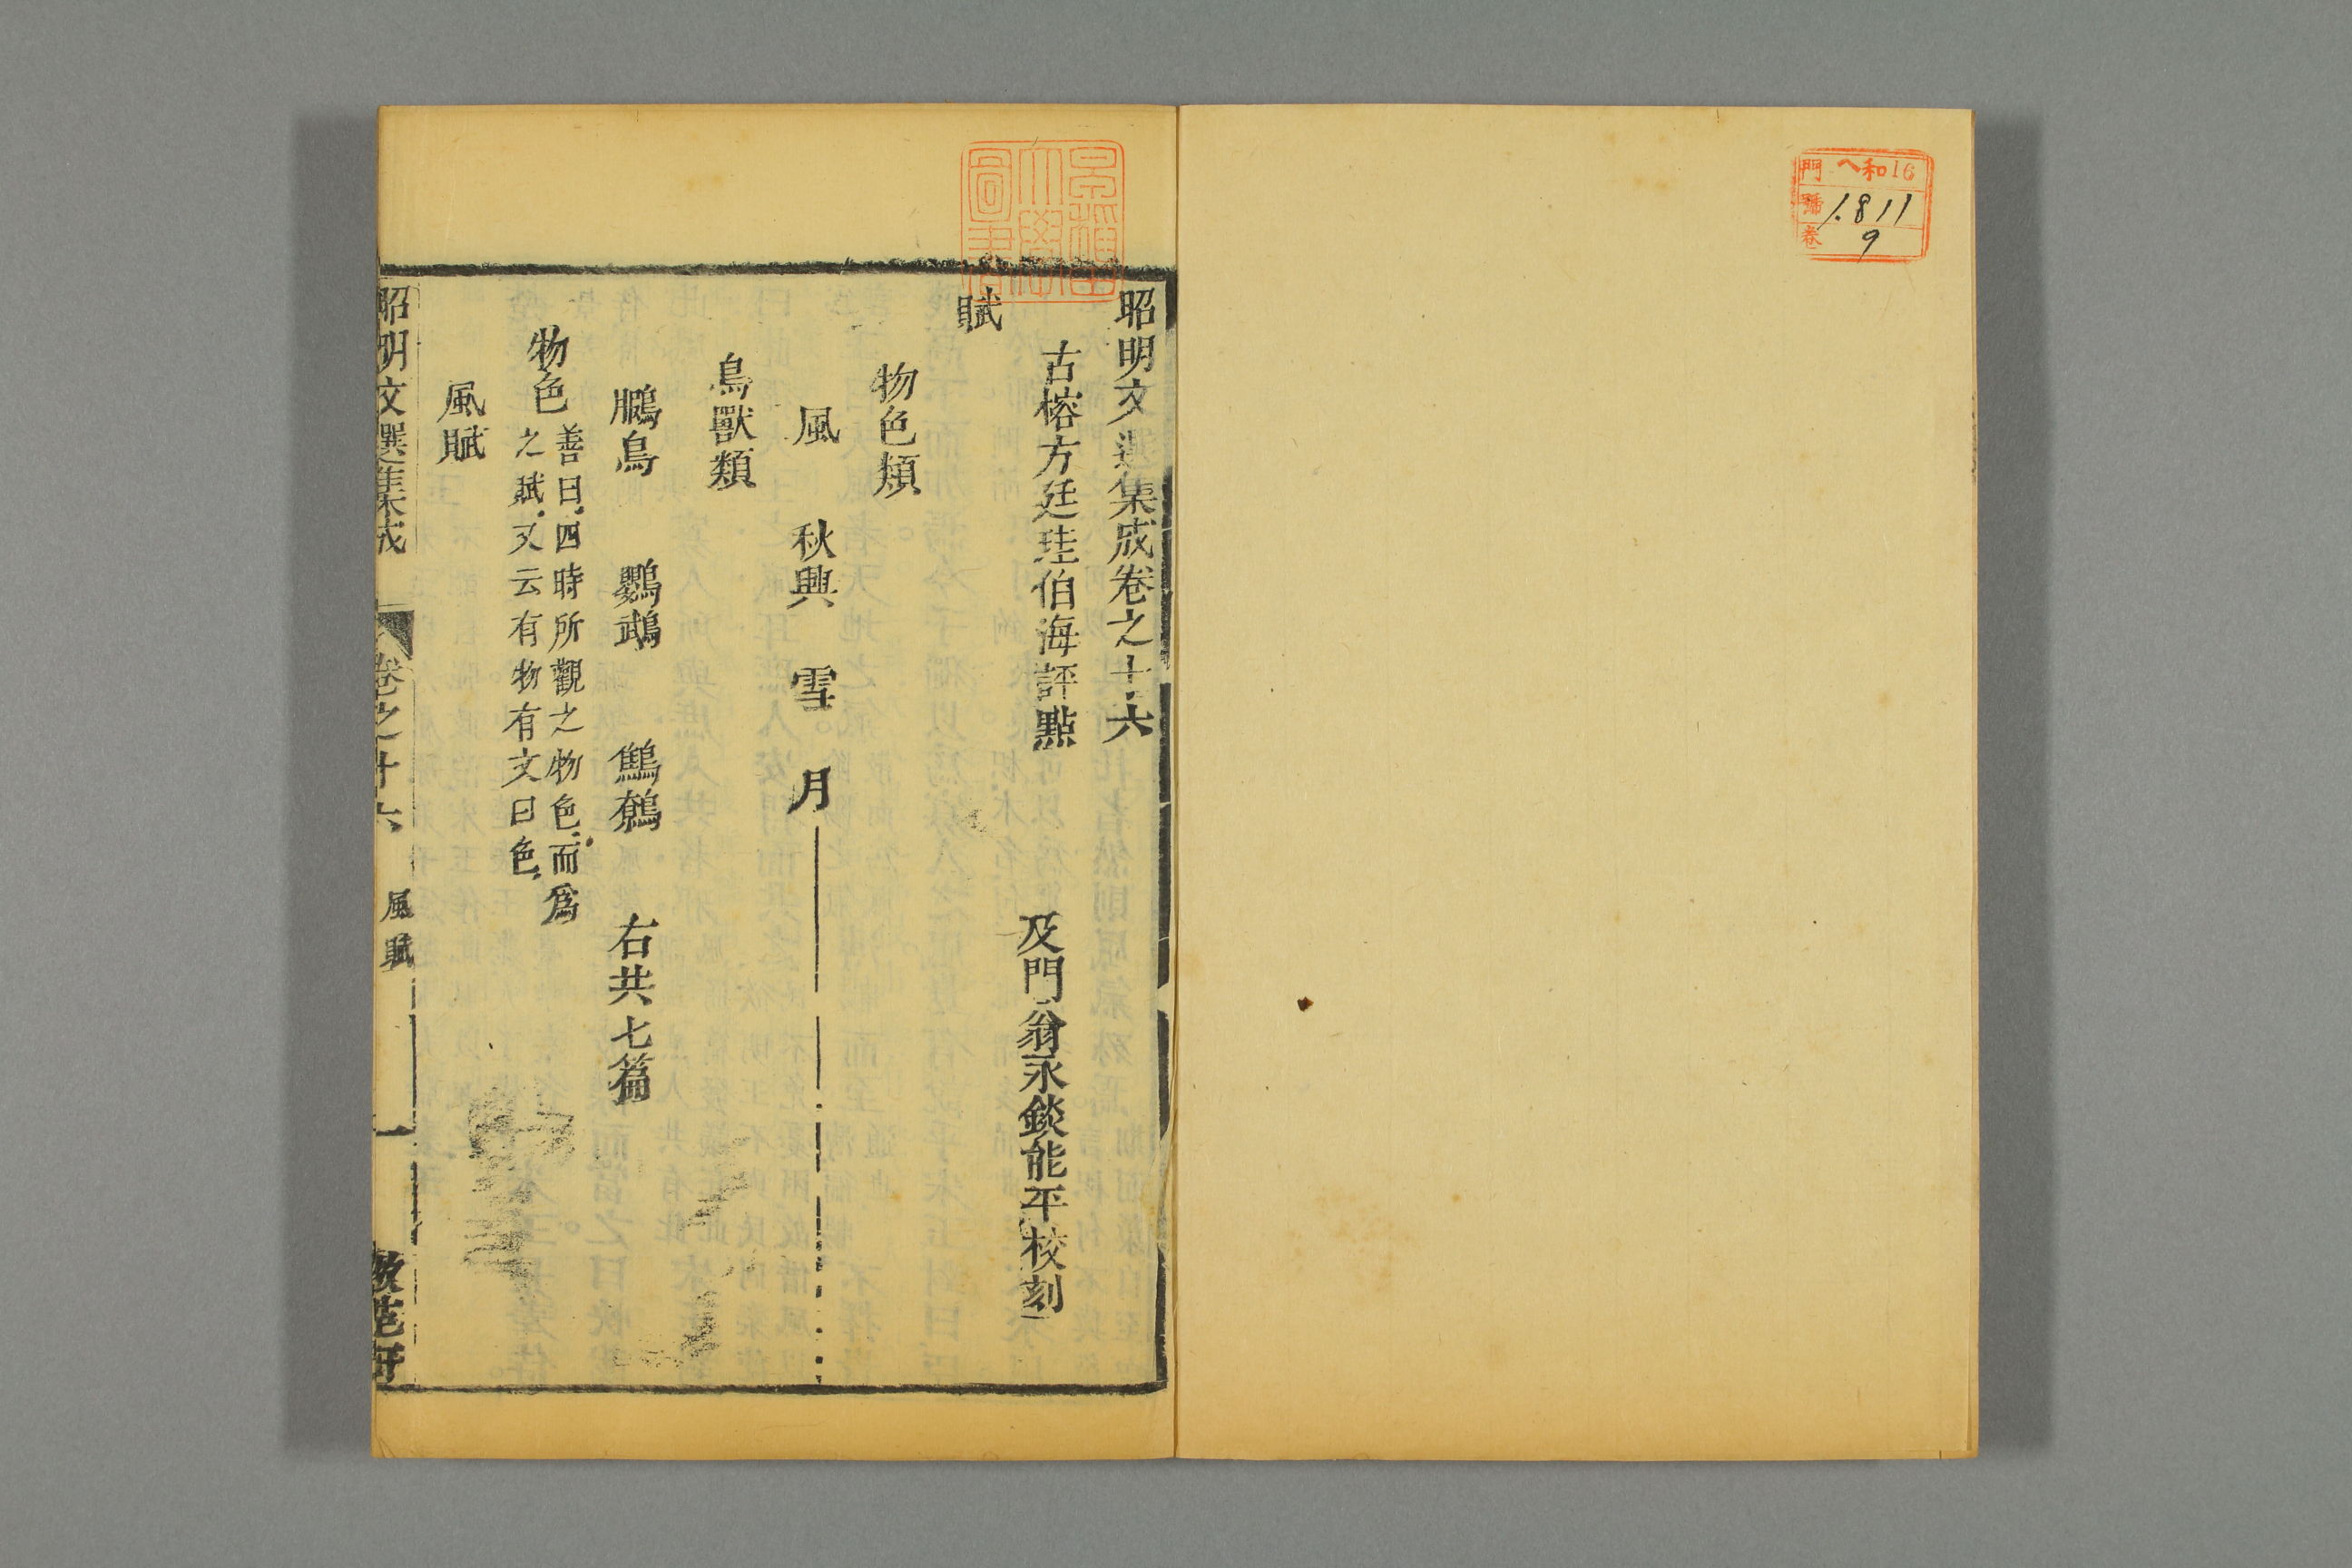 門 ヘ和16
號 1811
卷 9
昭明文選集成卷之十六
古榕方廷珪伯海評點 及門翁永錟能平校刻
賦
物色類
風 秋興 雪 月
鳥獸類
鵩鳥 鸚鵡 鷦鷯 右共七篇
物色 善曰四時所觀之物色而爲
之賦又云有物有文曰色
風賦
昭明文選集成 卷之十六 風賦 一
早稻田大學圖書